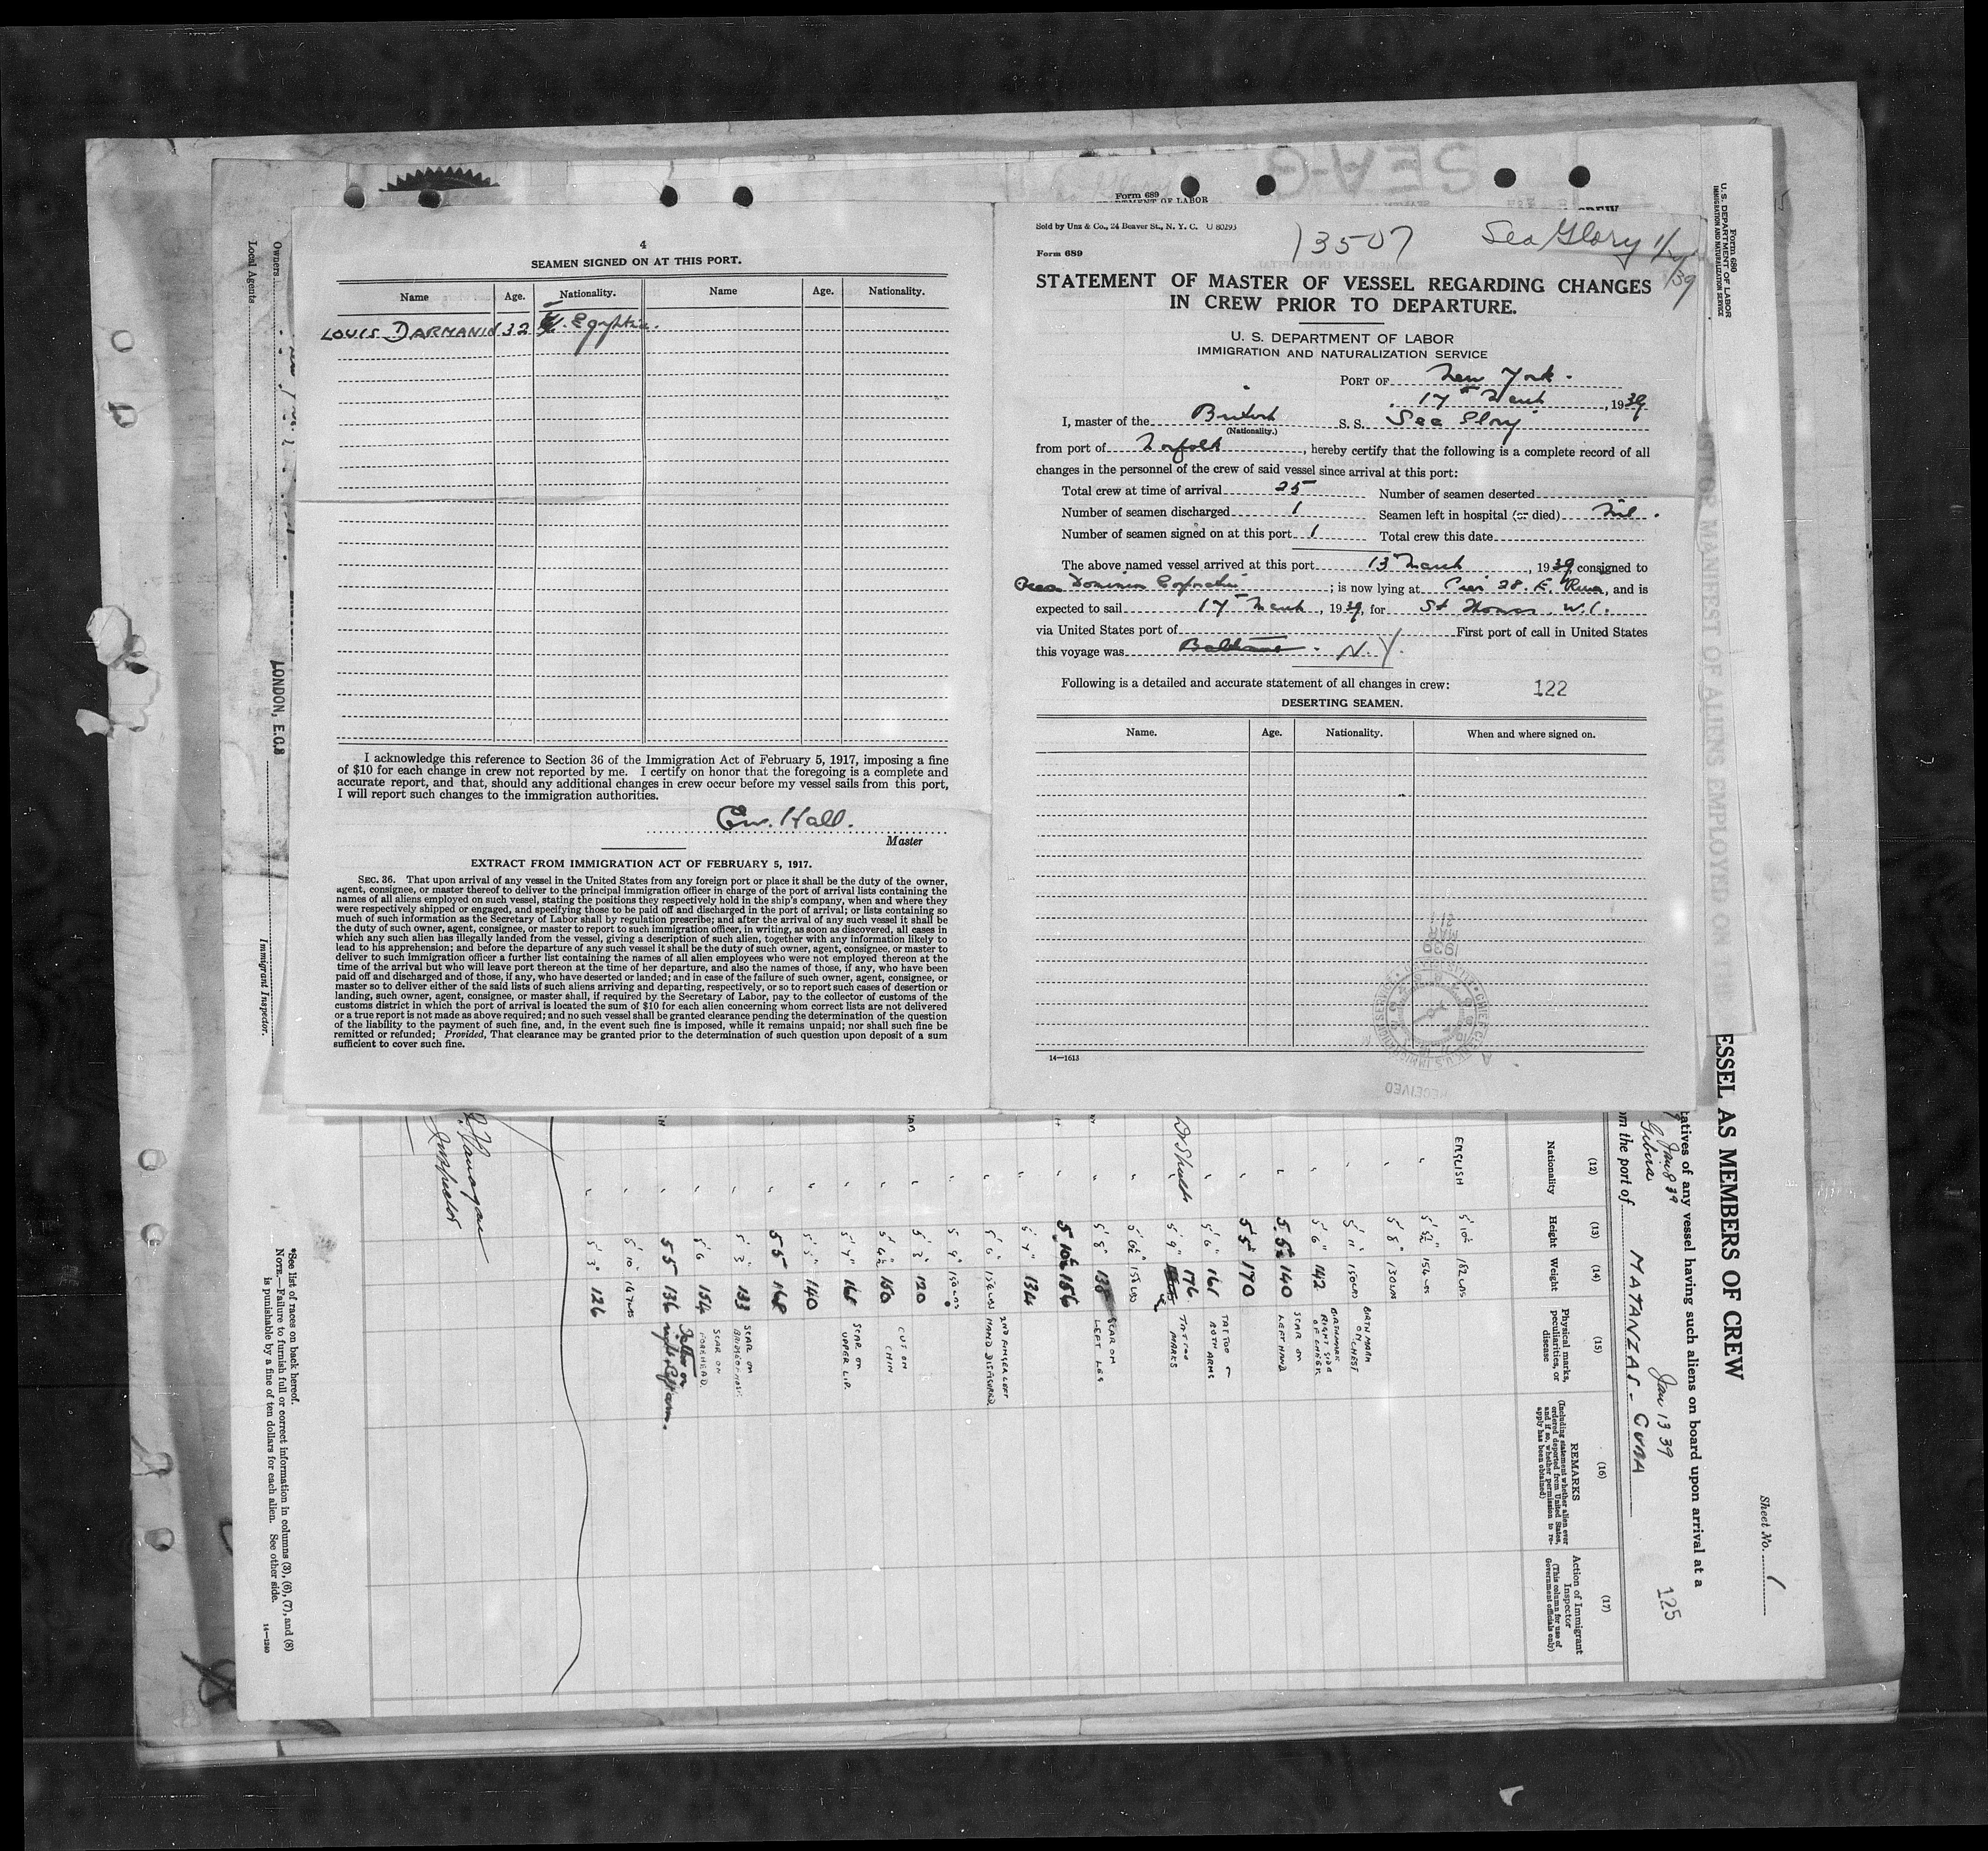 4
SEAMEN SIGNED ON AT THIS PORT.
Name Age. Nationality. Name Age. Nationality.
LOUIS DARMANIN 32
I acknowledge this reference to Section 36 of the Immigration Act of February 5, 1917, imposing a fine
of $10 for each change in crew not reported by me. I certify on honor that the foregoing is a complete and
accurate report, and that, should any additional changes in crew occur before my vessel sails from this port,
I will report such changes to the immigration authorities.
Ew. Hall.
Master
EXTRACT FROM IMMIGRATION ACT OF FEBRUARY 5, 1917.
SEC. 36. That upon arrival of any vessel in the United States from any foreign port or place it shall be the duty of the owner,
agent, consignee, or master thereof to deliver to the principal immigration officer in charge of the port of arrival lists containing the
names of all aliens employed on such vessel, stating the positions they respectively hold in the ship's company, when and where they
were respectively shipped or engaged, and specifying those to be paid off and discharged in the port of arrival; or lists containing so
much of such information as the Secretary of Labor shall by regulation prescribe; and after the arrival of any such vessel it shall be
the duty of such owner, agent, consignee, or master to report to such immigration officer, in writing, as soon as discovered, all cases in
which any such alien has illegally landed from the vessel, giving a description of such alien, together with any information likely to
lead to his apprehension; and before the departure of any such vessel it shall be the duty of such owner, agent, consignee, or master to
deliver to such immigration officer a further list containing the names of all alien employees who were not employed thereon at the
time of the arrival but who will leave port thereon at the time of her departure, and also the names of those, if any, who have been
paid off and discharged and of those, if any, who have deserted or landed; and in case of the failure of such owner, agent, consignee, or
master so to deliver either of the said lists of such aliens arriving and departing, respectively, or so to report such cases of desertion or
landing, such owner, agent, consignee, or master shall, if required by the Secretary of Labor, pay to the collector of customs of the
customs district in which the port of arrival is located the sum of $10 for each alien concerning whom correct lists are not delivered
or a true report is not made as above required; and no such vessel shall be granted clearance pending the determination of the question
of the liability to the payment of such fine, and, in the event such fine is imposed, while it remains unpaid; nor shall such fine be
remitted or refunded; Provided, That clearance may be granted prior to the determination of such question upon deposit of a sum
sufficient to cover such fine.
Form 689
Sold by Unz & Co., 24 Beaver St., N. Y. C. U 80293
13507
Sea Glory
Form 689
STATEMENT OF MASTER OF VESSEL REGARDING CHANGES
IN CREW PRIOR TO DEPARTURE.
U. S. DEPARTMENT OF LABOR
IMMIGRATION AND NATURALIZATION SERVICE
PORT OF New York.
17th March, 1939
I, master of the British S. S. Sea Glory
(Nationality.)
from port of Norfolk, hereby certify that the following is a complete record of all
changes in the personnel of the crew of said vessel since arrival at this port:
Total crew at time of arrival 25 Number of seamen deserted
Number of seamen discharged 1 Seamen left in hospital (or died) Nil.
Number of seamen signed on at this port 1 Total crew this date
The above named vessel arrived at this port 13 March, 1939, consigned to
Ocean Dominion; is now lying at Pier 28. E. River, and is
expected to sail 17th March, 1939, for St Thomas
via United States port of First port of call in United States
this voyage was Baltimore. N.Y.
Following is a detailed and accurate statement of all changes in crew: 122
DESERTING SEAMEN.
Name. Age. Nationality. When and where signed on.
14—1613
RECEIVED
1939
MAR
Owners
Local Agents
LONDON, E.C.3
Immigrant Inspector.
Form 689
U. S. DEPARTMENT OF LABOR
IMMIGRATION AND NATURALIZATION SERVICE
MANIFEST OF ALIENS EMPLOYED ON
Sheet No. 1
ESSEL AS MEMBERS OF CREW
atives of any vessel having such aliens on board upon arrival at a
Jan 8 39
Gibara
Jan 13 39
125
m the port of MATANZAS - CUBA
(12) (13) (14) (15) (16) (17)
Nationality Height Weight
Physical marks, peculiarities, or disease
REMARKS
(Including statement whether alien ever ordered deported from United States, and if so, whether permission to reapply has been obtained)
Action of Immigrant Inspector
(This column for use of Government officials only)
ENGLISH 5' 10½ 182 LBS
" 5' 5½" 154 LBS
" 5' 8" 130 LBS
" 5' 11" 150 LBS BIRTH MARK ON CHEST
" 5' 6" 142 BIRTHMARK RIGHT SIDE
" 5.5½ 140 SCAR ON LEFT HAND
" 5 5 170
" 5' 6" 161 TATTOO BOTH ARMS
" 5' 9" 176 TATTOO MARKS
" 5' 8" 138 SCAR ON LEFT LEG
" 5 10½ 156
" 5' 7" 134
" 5' 6" 2ND FINGER LEFT HAND DISFIGURED
" 5' 9"
" 5' 2" 120
" 5' 4½ 150 CUT ON CHIN
" 5' 7" 168 SCAR ON UPPER LIP.
" 5' 5" 140
" 5 5 168
" 5' 3" 133 SCAR ON BRIDGE OF NOSE
" 5' 6 154 SCAR ON FOREHEAD.
" 5 5 136 Tattoo on right forearm.
" 5' 10" 147 LBS
" 5' 3" 126
Inspector
*See list of races on back hereof.
NOTE.—Failure to furnish full or correct information in columns (3), (6), (7), and (8)
is punishable by a fine of ten dollars for each alien. See other side.
14—1240